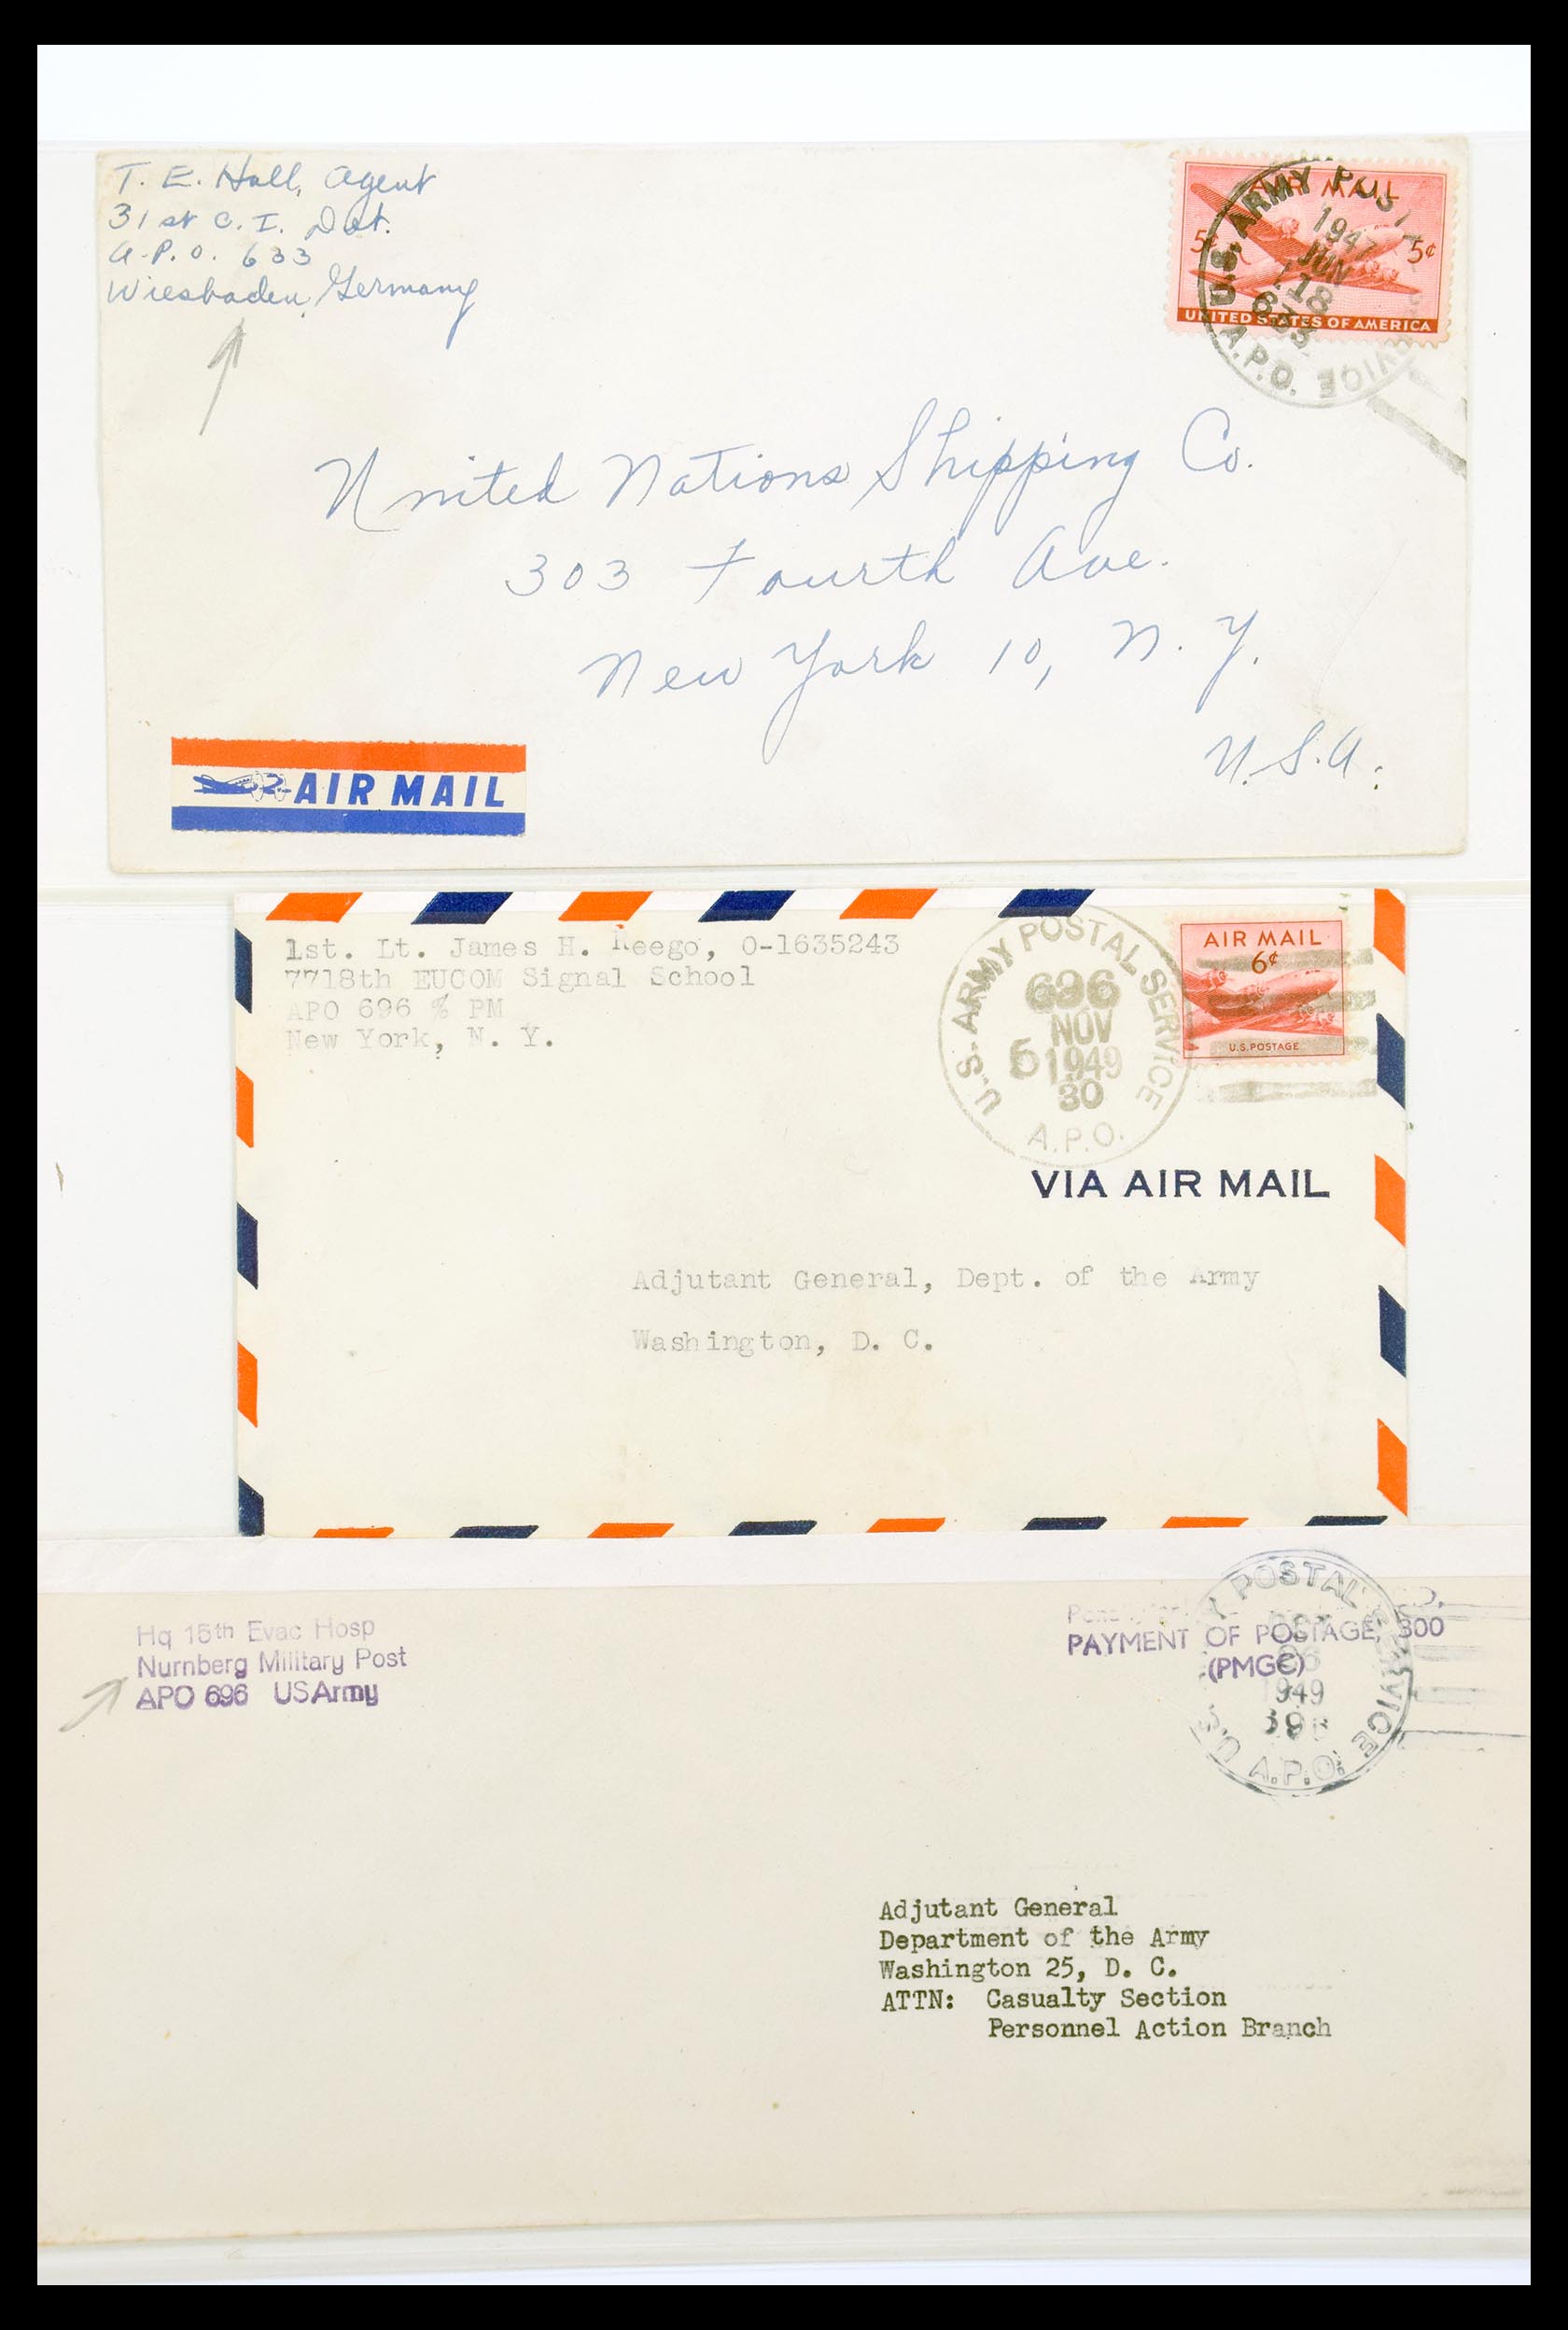 T. E. Hall, Agent
31st C. I. Det.
A.P.O. 633
Wiesbaden, Germany
AIR MAIL
5¢ 5¢
UNITED STATES OF AMERICA
U.S. ARMY POSTAL SERVICE
1947
JUN
18
633
A.P.O.
United Nations Shipping Co.
303 Fourth Ave.
New York 10, N. Y.
U.S.A.
AIR MAIL
1st. Lt. James H. Keego, O-1635243
7718th EUCOM Signal School
APO 696 % PM
New York, N. Y.
U.S. ARMY POSTAL SERVICE
696
NOV
5 1949
30
A.P.O.
AIR MAIL
6¢
U.S. POSTAGE
VIA AIR MAIL
Adjutant General, Dept. of the Army
Washington, D. C.
Hq 15th Evac Hosp
Nurnberg Military Post
APO 696 US Army
PAYMENT OF POSTAGE, 300
(PMGC)
POSTAL SERVICE
1949
U.S.
A.P.O.
Adjutant General
Department of the Army
Washington 25, D. C.
ATTN: Casualty Section
Personnel Action Branch